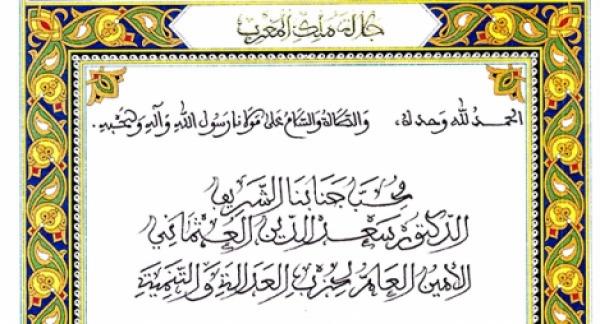 جلالة ملك المغرب
الحمد لله وحده، والصلاة والسلام على مولانا رسول الله وآله وصحبه.
محب جنابنا الشريف
الدكتور سعد الدين العثماني
الأمين العام لحزب العدالة والتنمية